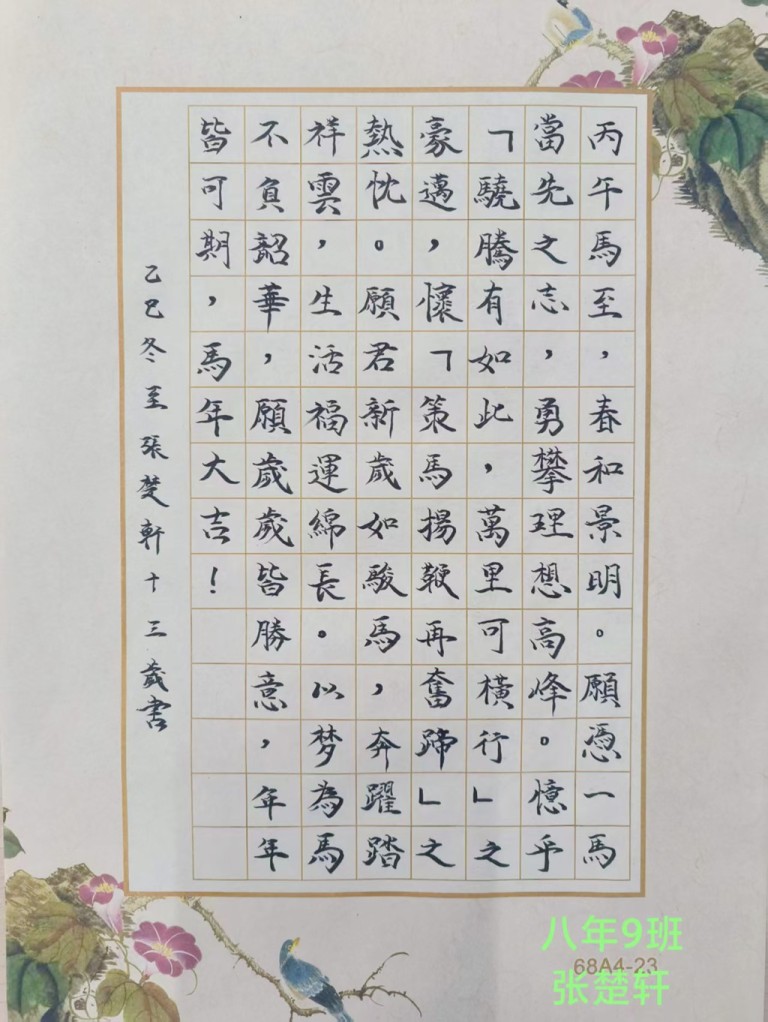 丙午馬至，春和景明。願憑一馬
當先之志，勇攀理想高峰。憶乎
「驍騰有如此，萬里可橫行」之
豪邁，懷「策馬揚鞭再奮蹄」之
熱忱。願君新歲如駿馬，奔躍踏
祥雲，生活福運綿長。以梦為馬
不負韶華，願歲歲皆勝意，年年
皆可期，馬年大吉！
乙巳冬至張楚軒十三歲書
八年9班
68A4-23
张楚轩